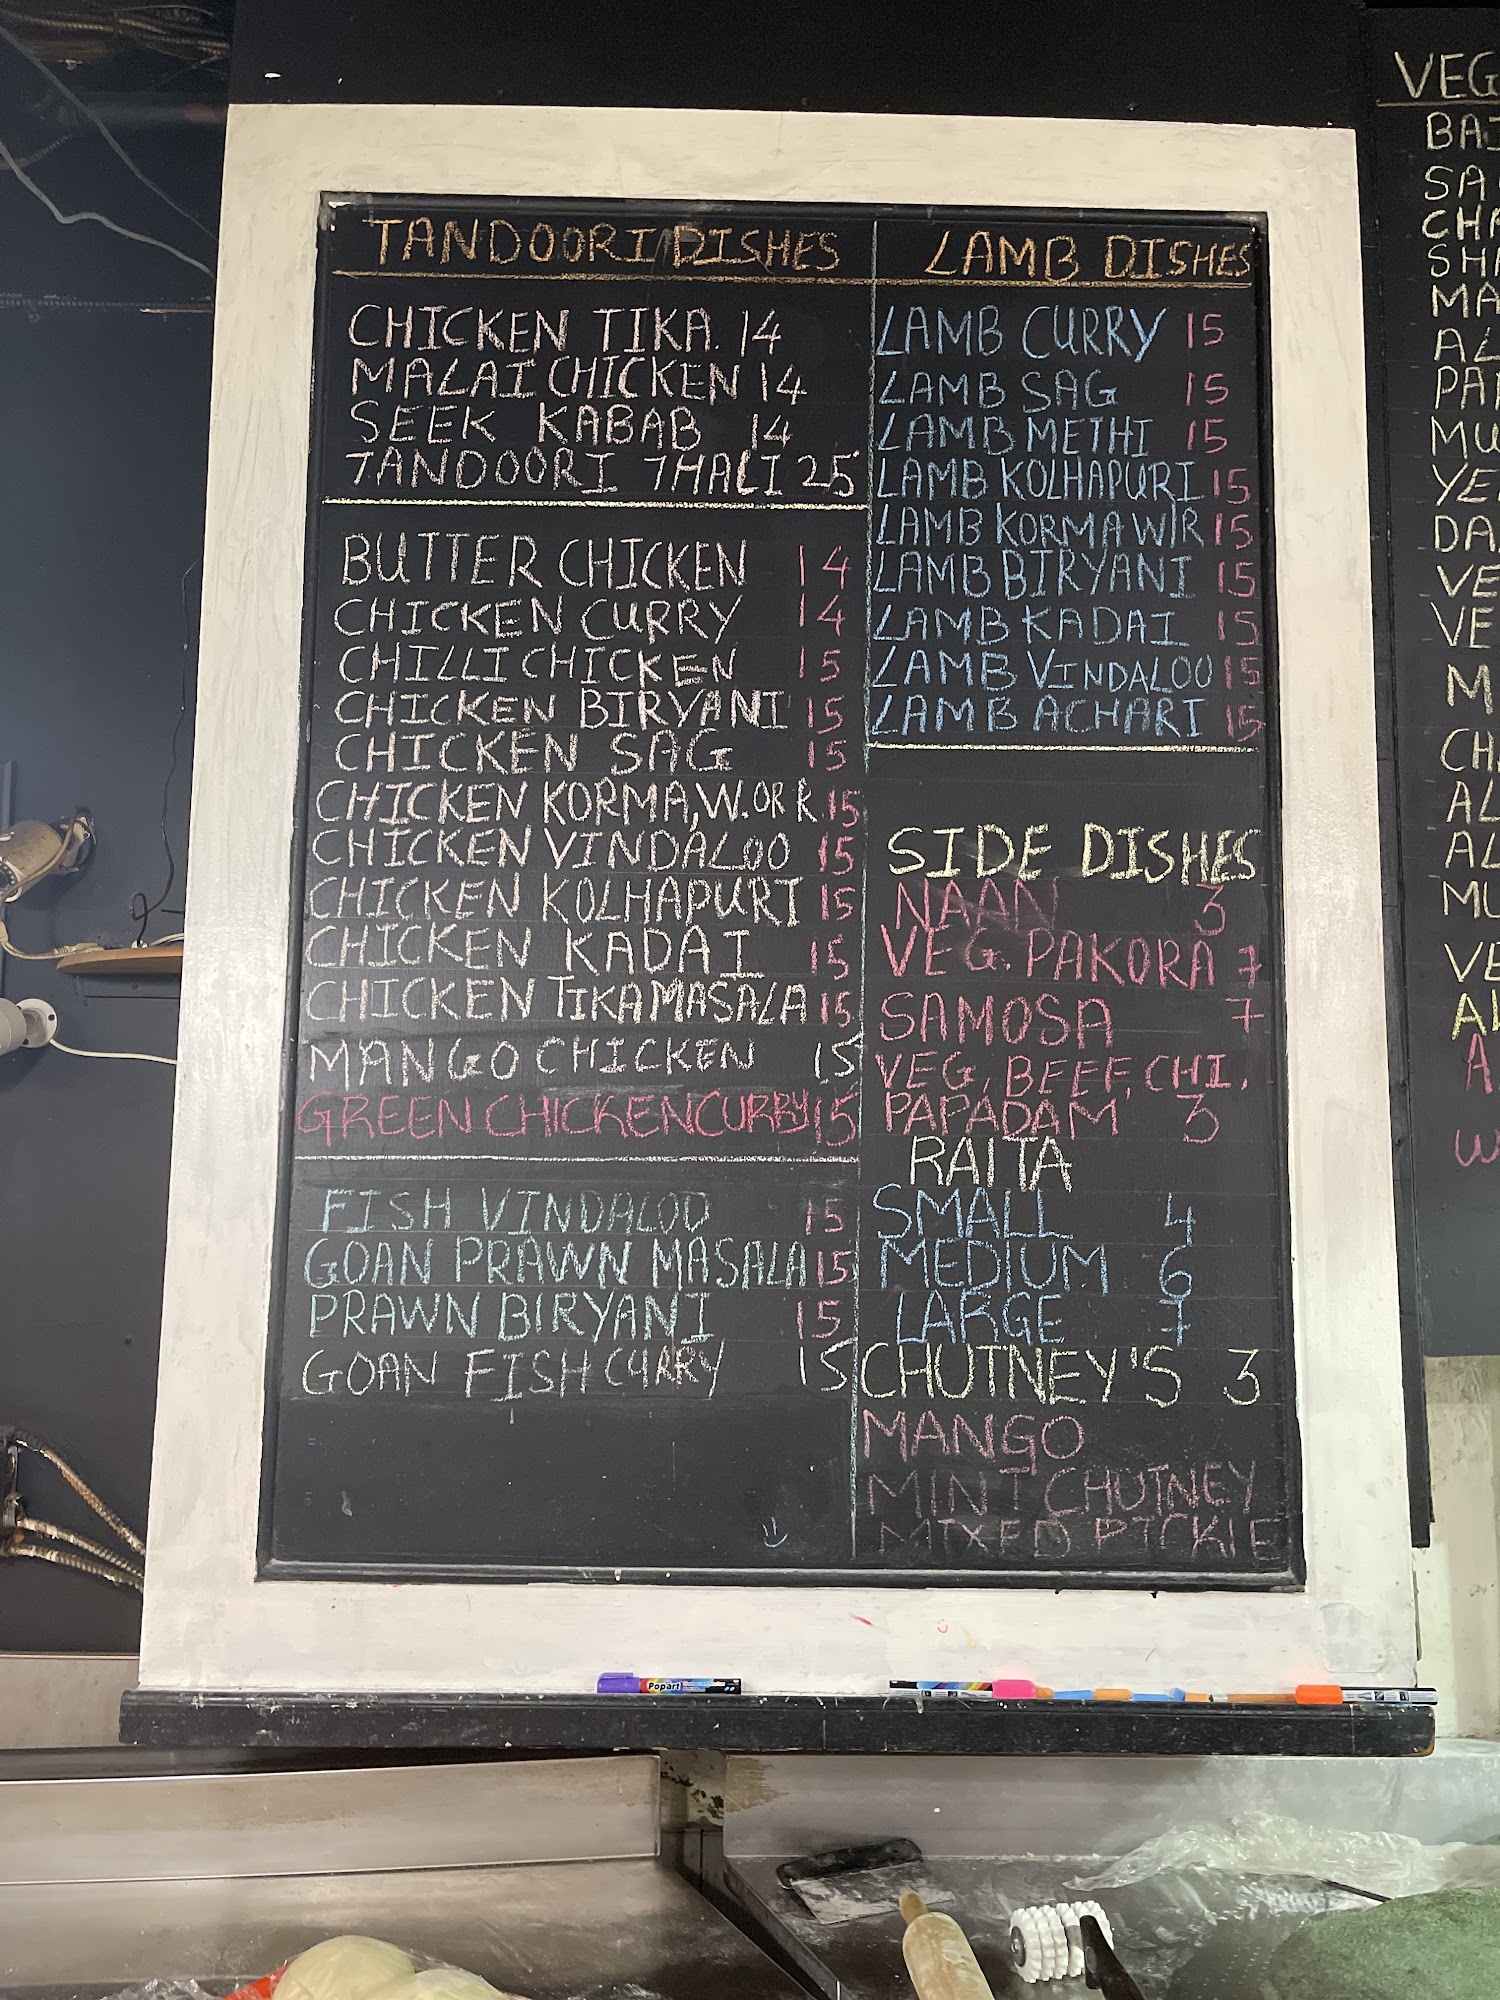 TANDOORI DISHES
CHICKEN TIKA. 14
MALAI CHICKEN 14
SEEK KABAB 14
TANDOORI THALI 25
BUTTER CHICKEN 14
CHICKEN CURRY 14
CHILLI CHICKEN 15
CHICKEN BIRYANI 15
CHICKEN SAG 15
CHICKEN KORMA, W. OR R 15
CHICKEN VINDALOO 15
CHICKEN KOLHAPURI 15
CHICKEN KADAI 15
CHICKEN TIKA MASALA 15
MANGO CHICKEN 15
GREEN CHICKEN CURRY 15
FISH VINDALOO 15
GOAN PRAWN MASALA 15
PRAWN BIRYANI 15
GOAN FISH CURRY 15
LAMB DISHES
LAMB CURRY 15
LAMB SAG 15
LAMB METHI 15
LAMB KOLHAPURI 15
LAMB KORMA W/R 15
LAMB BIRYANI 15
LAMB KADAI 15
LAMB VINDALOU 15
LAMB ACHARI 15
SIDE DISHES
NAAN 3
VEG. PAKORA 7
SAMOSA 7
VEG, BEEF, CHI.
PAPADAM 3
RAITA
SMALL 4
MEDIUM 6
LARGE 7
CHUTNEY'S 3
MANGO
MINT CHUTNEY
MIXED PICKLE
VEG
Popart